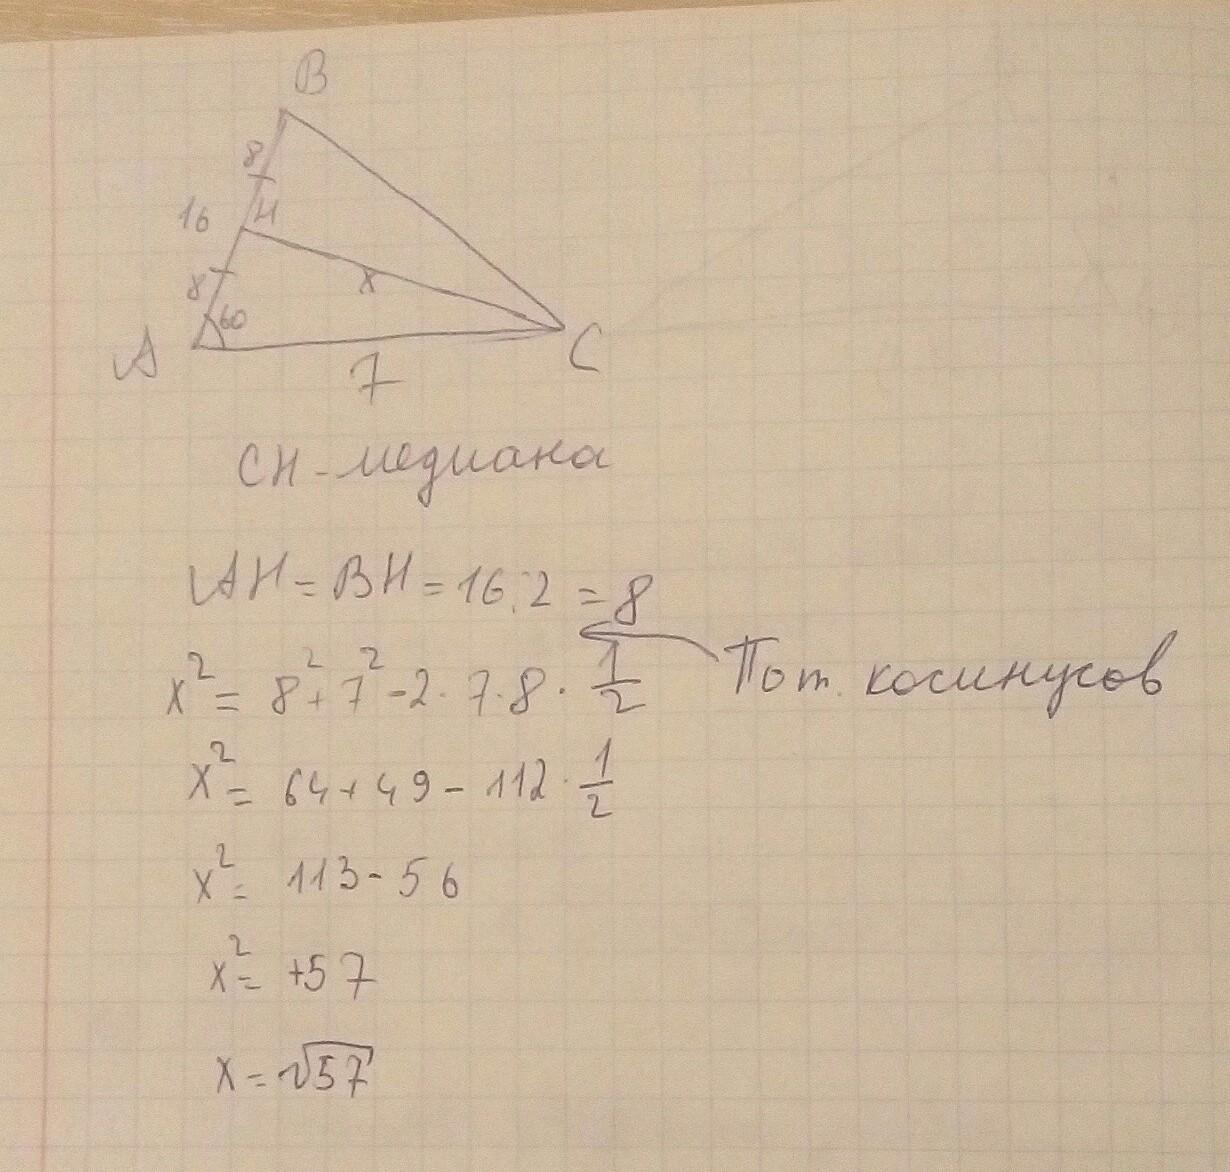 B
8
16 H
8 x
60
A C
7
CH - медиана
AH = BH = 16 : 2 = 8
x² = 8² + 7² - 2 · 7 · 8 · 1/2 По т. косинусов
x² = 64 + 49 - 112 · 1/2
x² = 113 - 56
x² = +57
x = √57